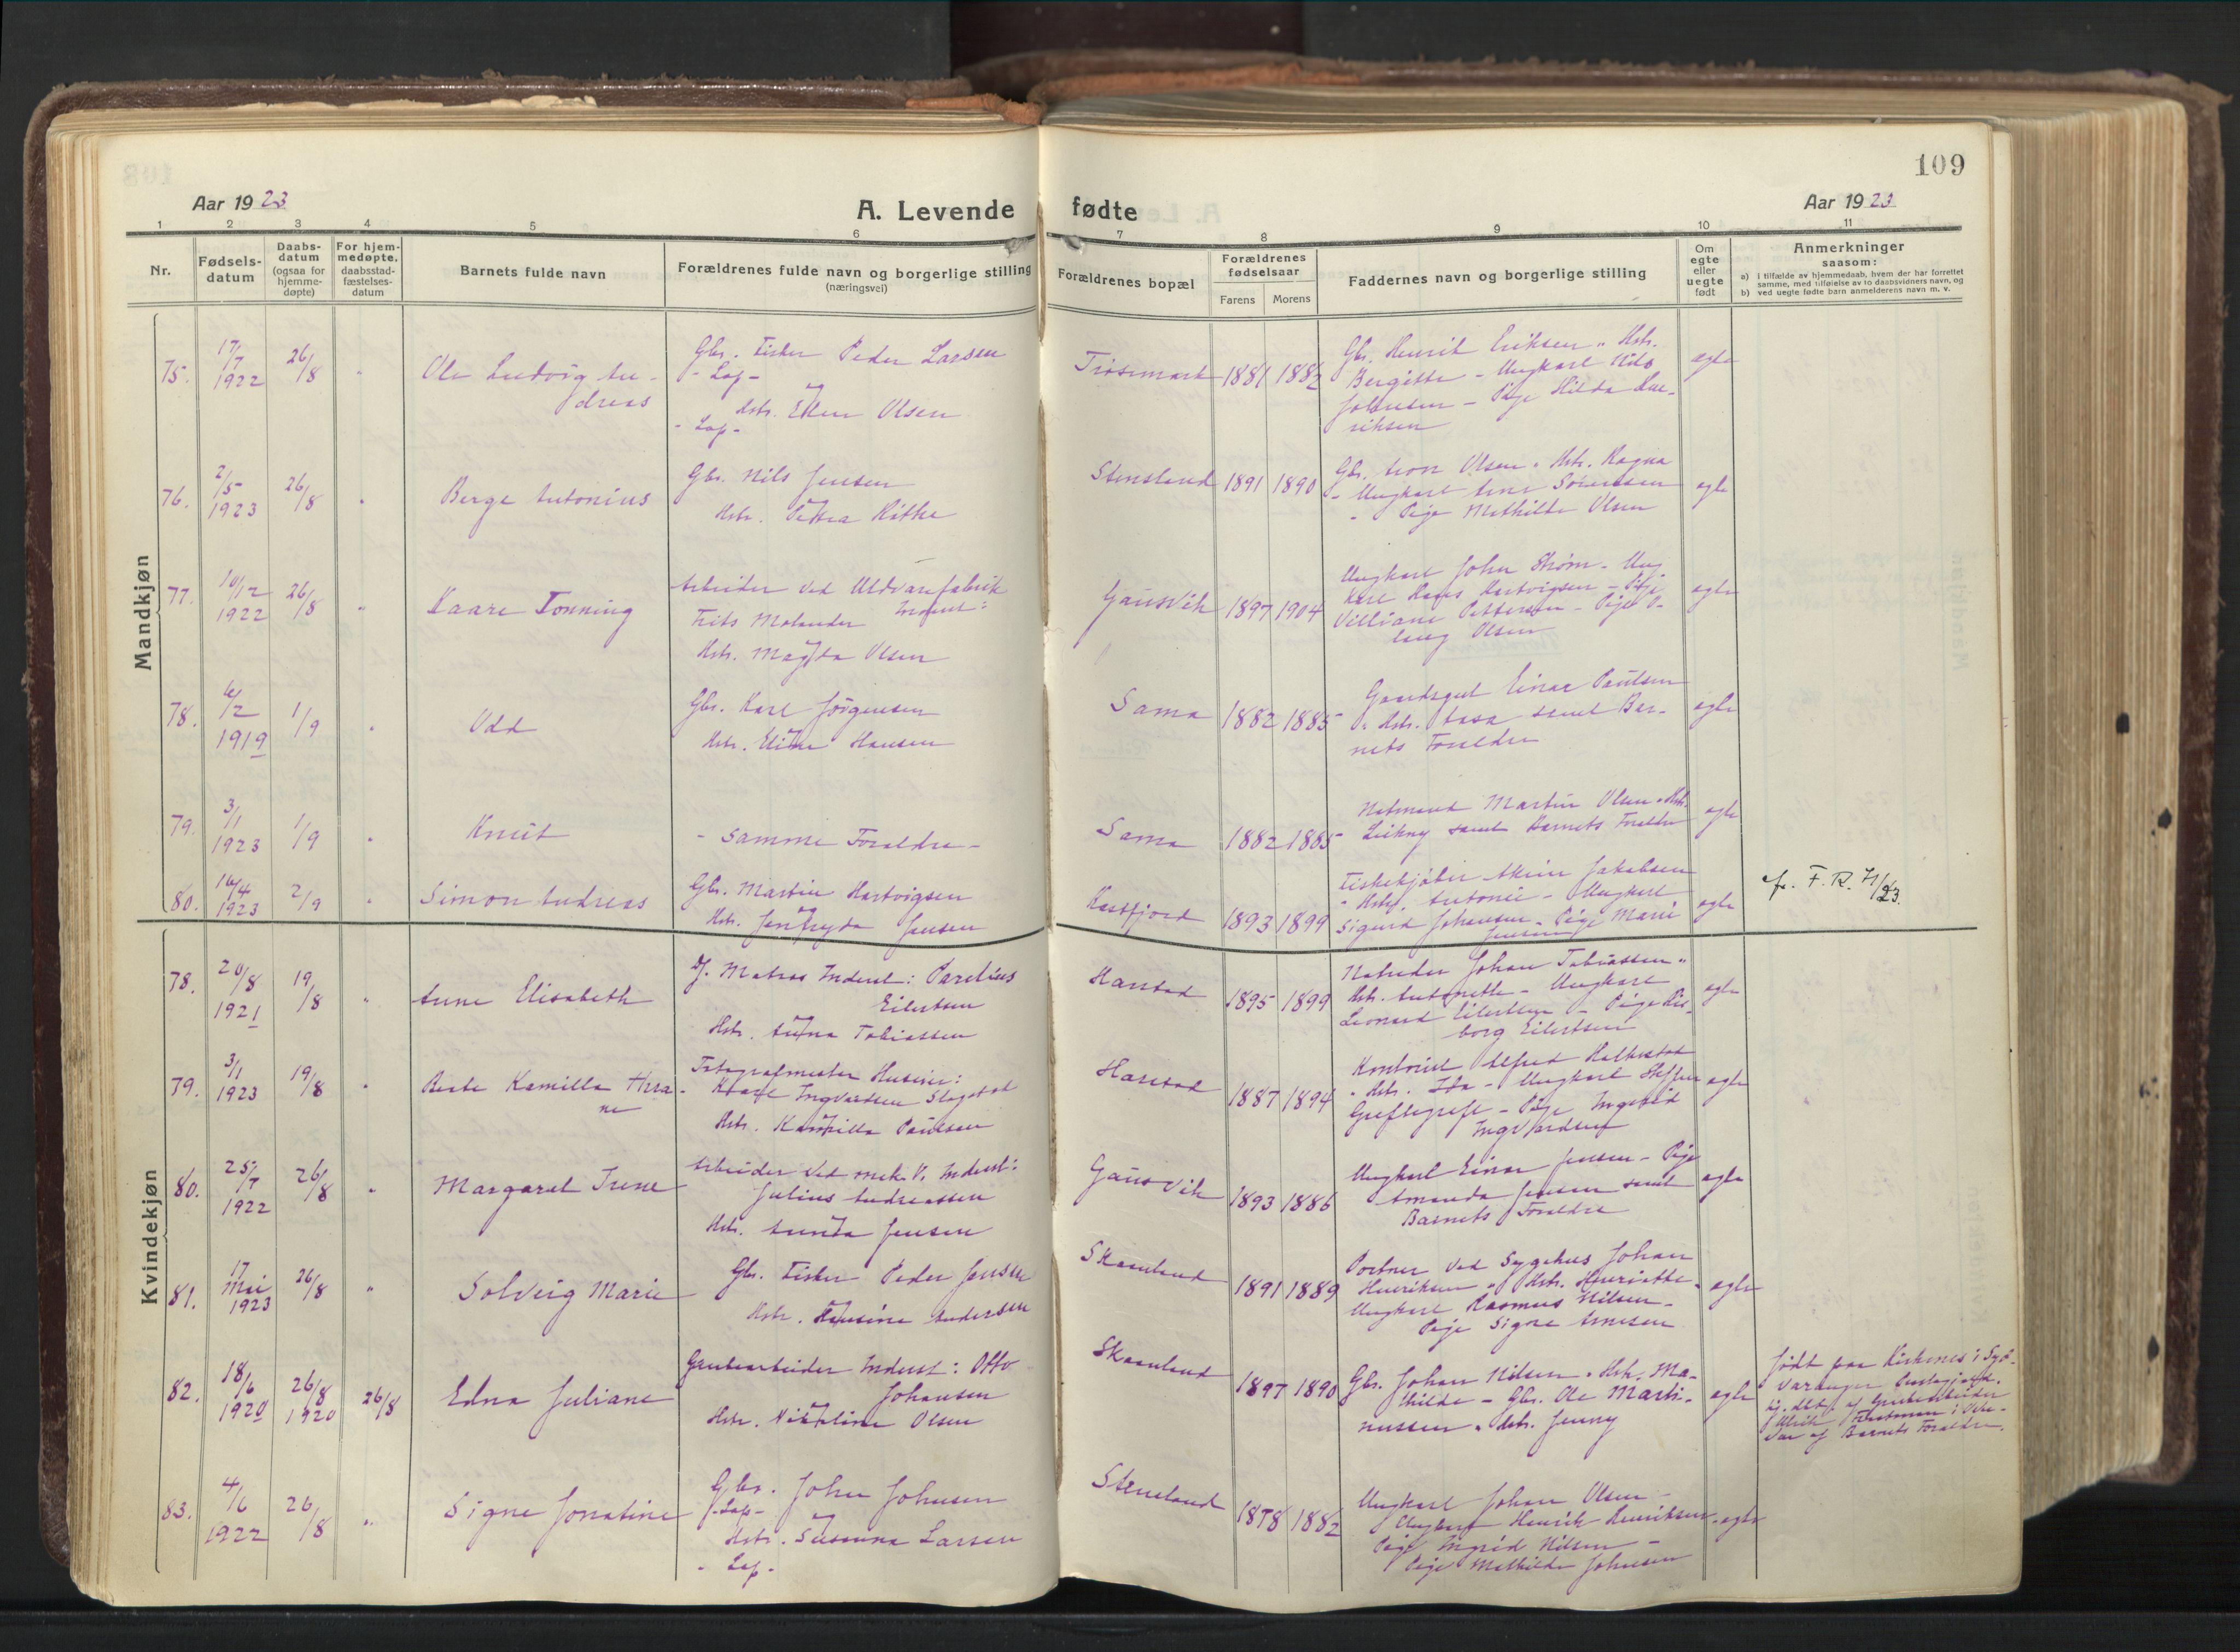 109
Aar 1923
A. Levende fødte
Aar 1923
1 2 3 4 5 6 7 8 9 10 11
Nr.
Fødsels-
datum
Daabs-
datum
(ogsaa for
hjemme-
døpte)
For hjem-
medøpte,
daabsstad-
fæstelses-
datum
Barnets fulde navn
Forældrenes fulde navn og borgerlige stilling
(næringsvei)
Forældrenes bopæl
Forældrenes
fødselsaar
Farens Morens
Faddernes navn og borgerlige stilling
Om
egte
eller
uegte
født
Anmerkninger
saasom:
a) i tilfælde av hjemmedaab, hvem der har forrettet
samme, med tilføielse av to daabsvidners navn, og
b) ved uegte fødte barn anmelderens navn m. v.
Mandkjøn
75. 17/7 1922 26/8 " Ole Ludvig An-
dreas
Gbr. Fisker Peder Larsen
- Lap -
Hstr. Ellen Olsen
- Lap -
1881 1882
Gbr. Henrik Eriksen " Hstr.
Bergitte - Ungkarl Nils
Johnsen - Pige Hilda Hen-
riksen
egte
76. 2/5 1923 26/8 " Berge Antonius
Gbr. Nils Jensen
Hstr. Petra
Stensland 1891 1890
Gbr. Aron Olsen " Hstr. Ragna
- Ungkarl Arne Sørensen
- Pige Mathilde Olsen
egte
77. 10/12 1922 26/8 " Kaare Tonning
Arbeider ved Uldvarefabrik
Frits Molander Indust:
Hstr. Magda Olsen
Gausvik 1897 1904
Ungkarl John Strøm - Ung
karl Hans Hartvigsen - Pige
Villiane Pettersen - Pige O-
laug Olsen
egte
78. 6/2 1919 1/9 " Odd
Gbr. Karl Jörgensen
Hstr. Eline Hansen
Sama 1882 1885
Gaardsgut Einar Paulsen
" Hstr. Aasa samt Bar-
nets Forældre
egte
79. 3/1 1923 1/9 " Knut
- samme Forældre -
Sama 1882 1885
Notmand Martin Olsen " Hstr.
Leikny samt Barnets Forældre
egte
80. 16/4 1923 2/9 " Simon Andreas
Gbr. Martin Hartvigsen
Hstr. Jenfryda Jensen
Kasfjord 1893 1899
Fiskekjøber Jakobsen
" Hstr. Antonie - Ungkarl
Sigurd Johansen - Pige Marie
Jensen
egte
cfr. F. R. 71/23.
Kvindekjøn
78. 20/8 1921 19/8 " Anne Elisabeth
J. Matros Indust: Parelius
Eilertsen
Hstr. Anna Tobiassen
Harstad 1895 1899
Johan Tobiassen "
Hstr. Antonette - Ungkarl
Leonard Eilertsen - Pige
borg Eilertsen
egte
79. 3/1 1923 19/8 " Beate Kamilla Thra-
ne
Fotografmester
Karl Ingvardsen Slagstad
Hstr. Kamilla Paulsen
Harstad 1887 1894
Kontorist Alfred
" Hstr. Ida - Ungkarl Steffen
- Pige Ingebrid
Ingvardsen
egte
80. 25/7 1922 26/8 " Margaret Irene
Arbeider ved mek. V. Indust:
Julius Andreassen
Hstr. Jensen
Gausvik 1893 1886
Ungkarl Einar Jensen - Pige
Amanda Jensen samt
Barnets Forældre
egte
81. 17 Mai 1923 26/8 " Solveig Marie
Gbr. Fisker Peder Jensen
Hstr. Hansine Andersen
Skaanland 1891 1889
Portner ved Sygehus Johan
Henriksen " Hstr. Henriette -
Ungkarl Rasmus Nilsen -
Pige Signe Arnesen
egte
82. 18/6 1920 26/8 1920 26/8 Edna Juliane
Grubearbeider Indust: Otto
Johansen
Hstr. Nikoline Olsen
Skaanland 1897 1890
Gbr. Johan Nilsen " Hstr. Ma-
thilde - Gbr. Ole Marti-
nussen " Hstr. Jenny
egte
født paa Kirkenes i Syd-
varanger Prestegjeld.
Hj. døbt af Grubearbeider
Ulrik
af Barnets Forældre.
83. 4/6 1922 26/8 " Signe Jonatine
Gbr. John Johnsen
- Lap -
Hstr. Susanna Larsen
- Lap -
Stensland 1878 1882
Ungkarl Johan Olsen -
Ungkarl Henrik Henriksen -
Pige Ingrid Nilsen -
Pige Mathilde Johnsen
egte